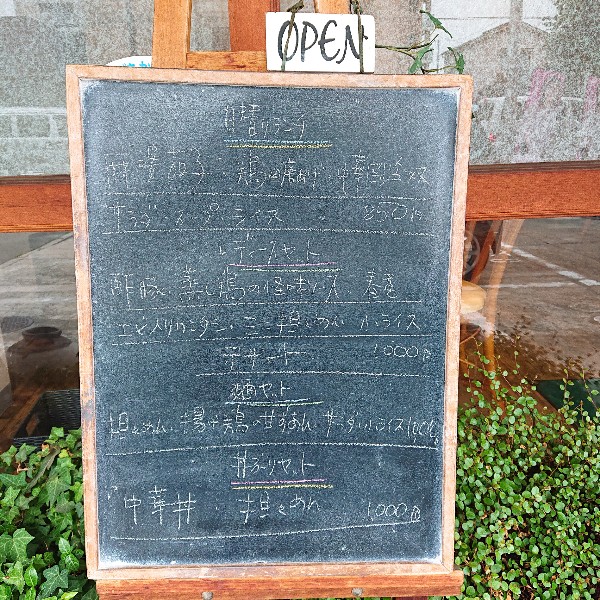 OPEN
日替りランチ
焼 餃子・鶏の唐あげ 中華風ソース
サラダ・スープ・ライス 850円
レディースセット
酢豚 蒸し鶏の怪味ソース 春巻
エビ入りワンタン・ミニ担々めん か ライス
デザート 1000円
麺セット
担々めん・揚げ鶏の甘酢あん サラダ・ライス
丼ぶりセット
中華丼 担々めん 1,000円